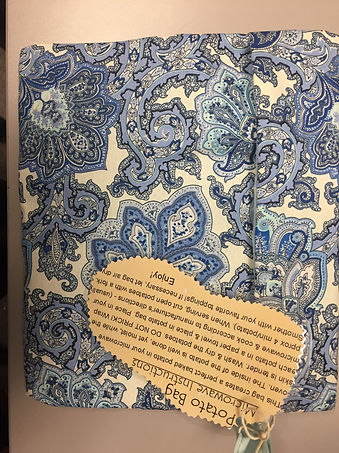 Potato Bag
Microwave Instructions
This bag creates a perfect baked potato in your microwave
oven. The inside of the potato is well done, yet moist, while the
skin is tender. Wash & dry potatoes DO NOT PRICK. Wrap
each potato in a paper towel & place in potato bag. Place in your
microwave & cook according to manufacturer's directions - (usually
approx 4 min/potato). When serving cut open potatoes with a fork.
Smother with your favorite toppings! If necessary, let bag air dry.
Enjoy!